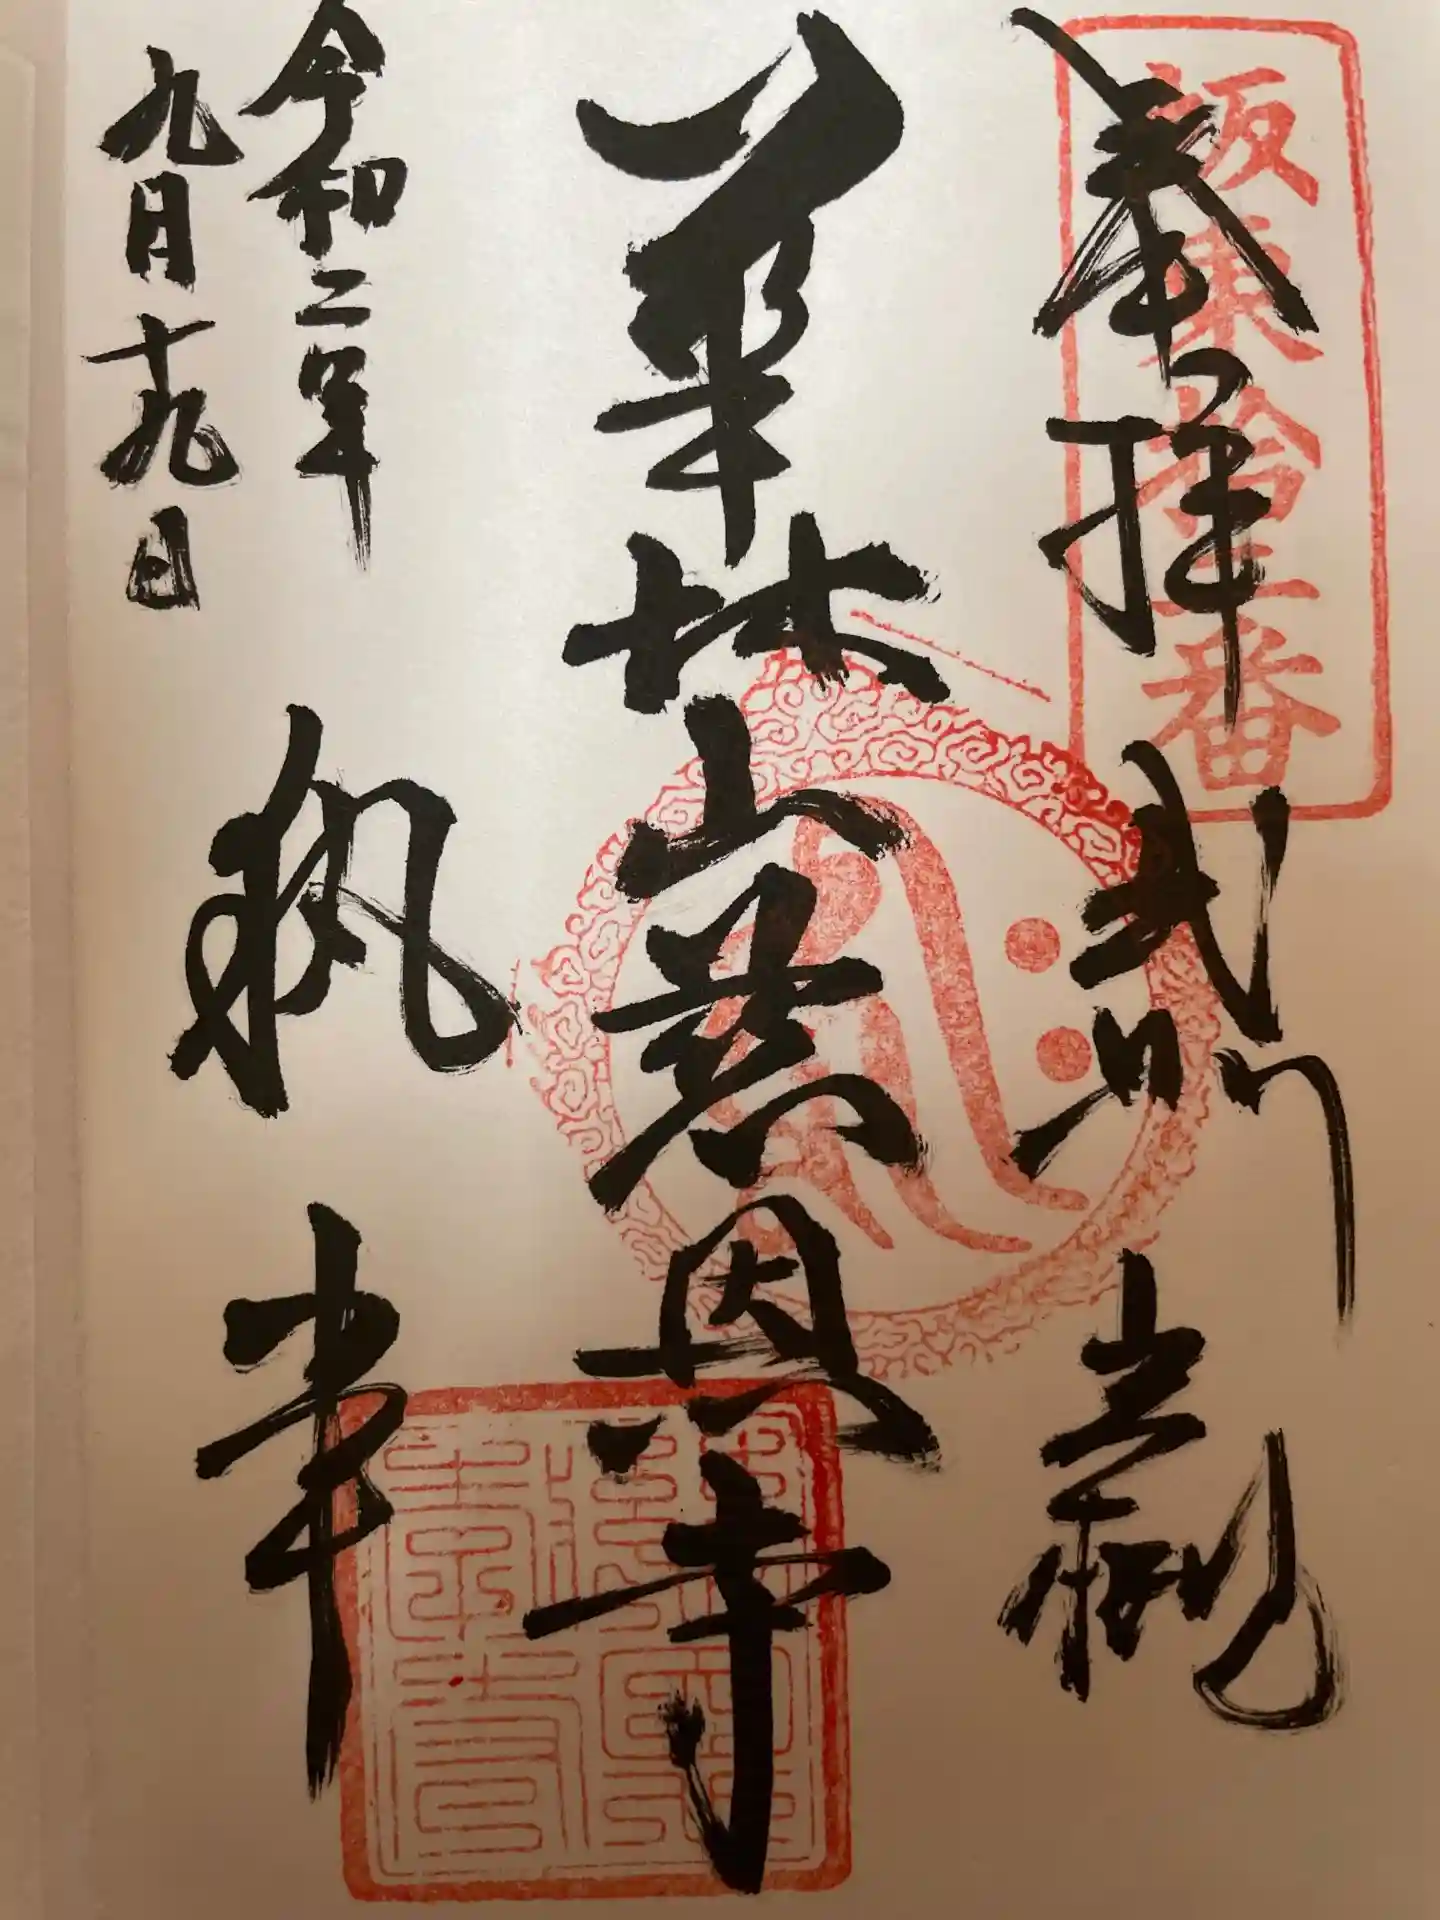 坂東拾二番
奉拝 武州岩槻
華林山慈恩寺
令和二年
九月十九日
執事